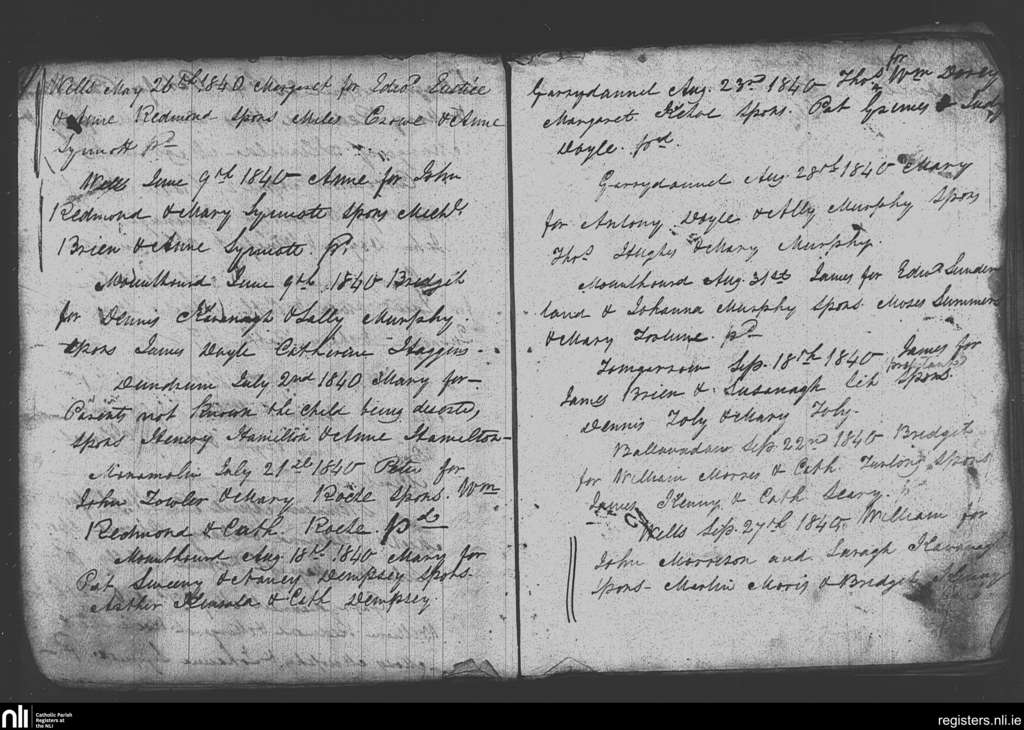 Wells May 26th 1840 Margaret for Edwd. Eustice
& Anne Redmond spons Miles & Anne
Synnott pd
Wells June 9th 1840 Anne for John
Redmond & Mary Synnott spons Michl.
Brien & Anne Synnott. pd.
Mounthourd June 9th 1840 Bridget
for Dennis Kavanagh & Sally Murphy.
spons James Doyle Catherine Haggens.
Dundrum July 2nd 1840 Mary for
Parents not known the child being deserted,
spons Henery Hamilton & Anne Hamilton
Minamolin July 21st 1840 Peter for
John Fowler & Mary Roche spons. Wm
Redmond & Cath. Roche. pd
Mounthourd Aug 18th 1840 Mary for
Pat Sweeny & Nancy Dempsey spons.
Arther Kinsela & Cath Dempsey.
Garrydannel Aug. 23rd 1840 Thos for Wm
Margaret Kehoe spons. Pat & Judy
Doyle. pd.
Garrydannel Aug 28th 1840 Mary
for Antony Doyle & Ally Murphy spons
Thos. Hughes & Mary Murphy.
Mounthourd Aug. 31st James for Edwd Sunder
land & Johanna Murphy spons Moses Summers
& Mary Fortune. pd
Tomgarrow Sep. 18th 1840 James for
James Brien & Susanagh spons.
Dennis Foly & Mary Foly.
Sep. 22nd 1840 Bridget
for William Morres & Cath. Furlong spons
James Kenny & Cath Leary.
Wells Sep. 27th 1840. William for
John Morrison and Saragh Kavanagh
spons Martin Morris & Bridget
nli
Catholic Parish
Registers at
the NLI
registers.nli.ie